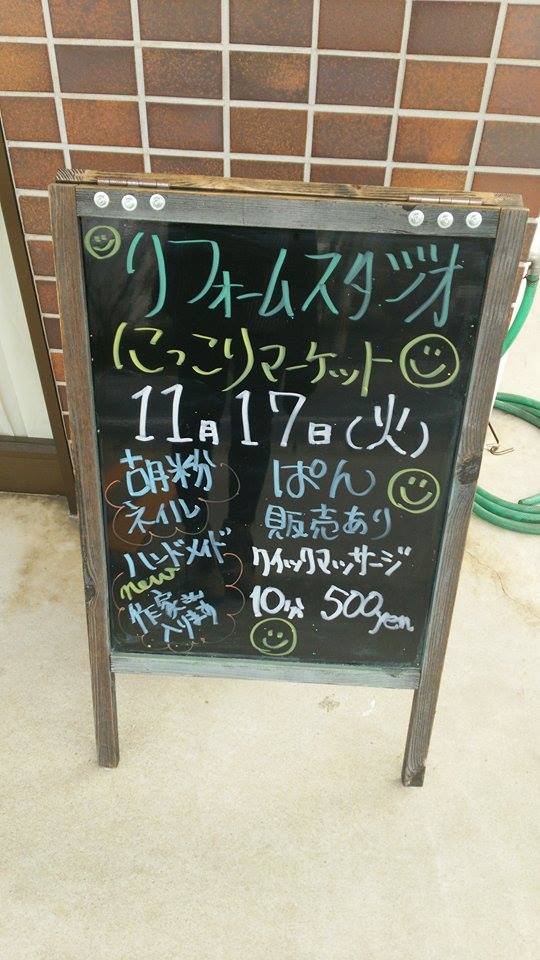 リフォームスタジオ
にっこりマーケット
11月17日(火)
胡粉
ネイル
ぱん
販売あり
ハンドメイド
new
作家出
入ります
クイックマッサージ
10分 500yen